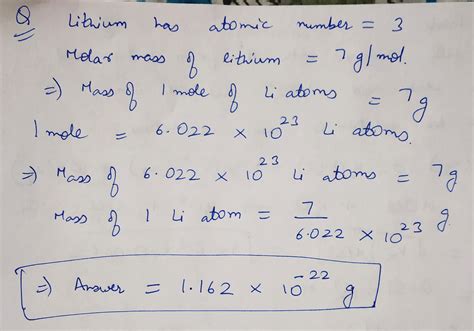 Q Lithium has atomic number = 3
Molar mass of lithium = 7 g/mol.
=) Mass of 1 mole of Li atoms = 7g
1 mole = 6.022 × 10^23 Li atoms.
=) Mass of 6.022 × 10^23 Li atoms = 7g
Mass of 1 Li atom = 7 / 6.022 × 10^23 g
=) Answer = 1.162 × 10^-22 g